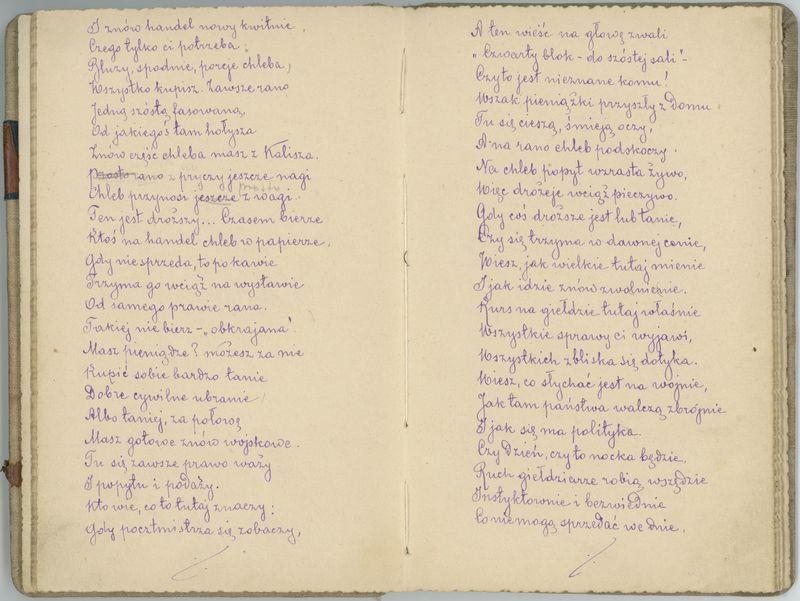 I znów handel nowy kwitnie,
Czego tylko ci potrzeba,
Bluzy, spodnie, porcje chleba,
Wszystko kupisz. Zawsze rano
Jedną szóstą fasowaną,
Od jakiegoś tam hołysza
Znów część chleba masz z Kalisza.
Prosto rano z pryczy jeszcze nagi
Chleb przynosi jeszcze prosto z wagi.
Ten jest droższy... Czasem bierze
Ktoś na handel chleb w papierze,
Gdy nie sprzeda, to po kawie
Trzyma go wciąż na wystawie
Od samego prawie rana.
Takiej nie bierz - „obkrajana".
Masz pieniądze? możesz za nie
Kupić sobie bardzo tanie
Dobre cywilne ubranie,
Albo taniej, za połowę
Masz gotowe znów wojskowe.
Tu się zawsze prawo waży
I popytu i podaży.
Kto wie, co to tutaj znaczy:
Gdy pocztmistrza się zobaczy,
A ten wieść na głowę zwali
„Czwarty blok - do szóstej sali" -
Czy to jest nieznane komu!
Wszak pieniążki przyszły z domu.
Tu się cieszą, śmieją oczy,
A na rano chleb podskoczy.
Na chleb popyt wzrasta żywo,
Więc drożeje wciąż pieczywo.
Gdy coś droższe jest lub tanie,
Czy się trzyma w dawnej cenie,
Wiesz, jak wielkie tutaj mienie
I jak idzie znów zwolnienie.
Kurs na giełdzie tutaj właśnie
Wszystkie sprawy ci wyjawi,
Wszystkich zbliska się dotyka.
Wiesz, co słychać jest na wojnie,
Jak tam państwa walczą zbrojnie
I jak się ma polityka.
Czy dzień, czy to nocka będzie,
Ruch giełdziarze robią wszędzie
Instyktownie i bezwiednie
Co nie mogą sprzedać we dnie,